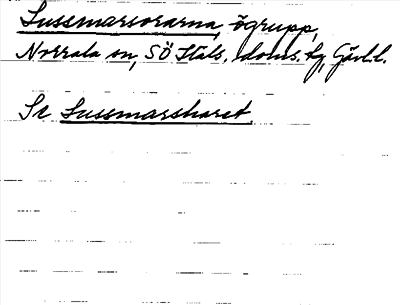 Lussmarsorarna, ögrupp,
Norrala sn, SÖ Häls. doms. tg, Gävl.l.
Se Lussmarsharet.